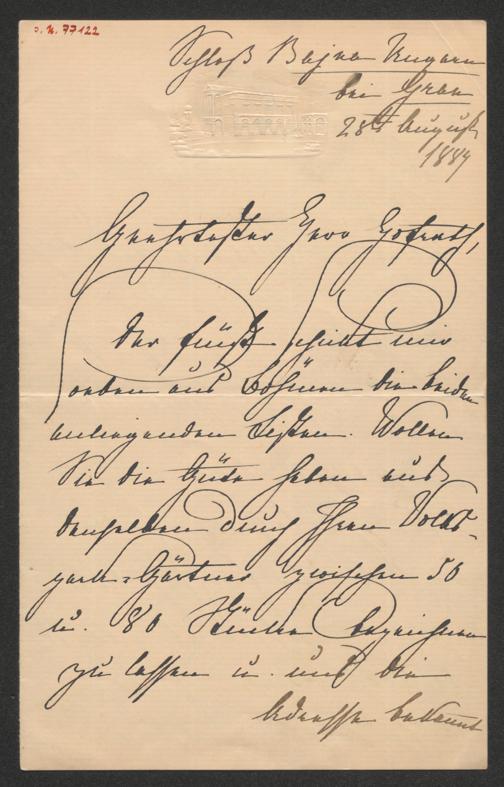 I. N. 77122
Schloß Bajna Ungarn
bei Gran
28t August
1889
Geehrtester Herr Hofrath,
Der Fürst schickt mir
soeben aus Böhmen die beiden
anliegenden Listen. Wollen
Sie die Güte haben aus
denselben durch Ihren Volks-
park-Gärtner zwischen 50
u. 80 Stücke bezeichnen
zu lassen u. uns die
Adresse bekannt